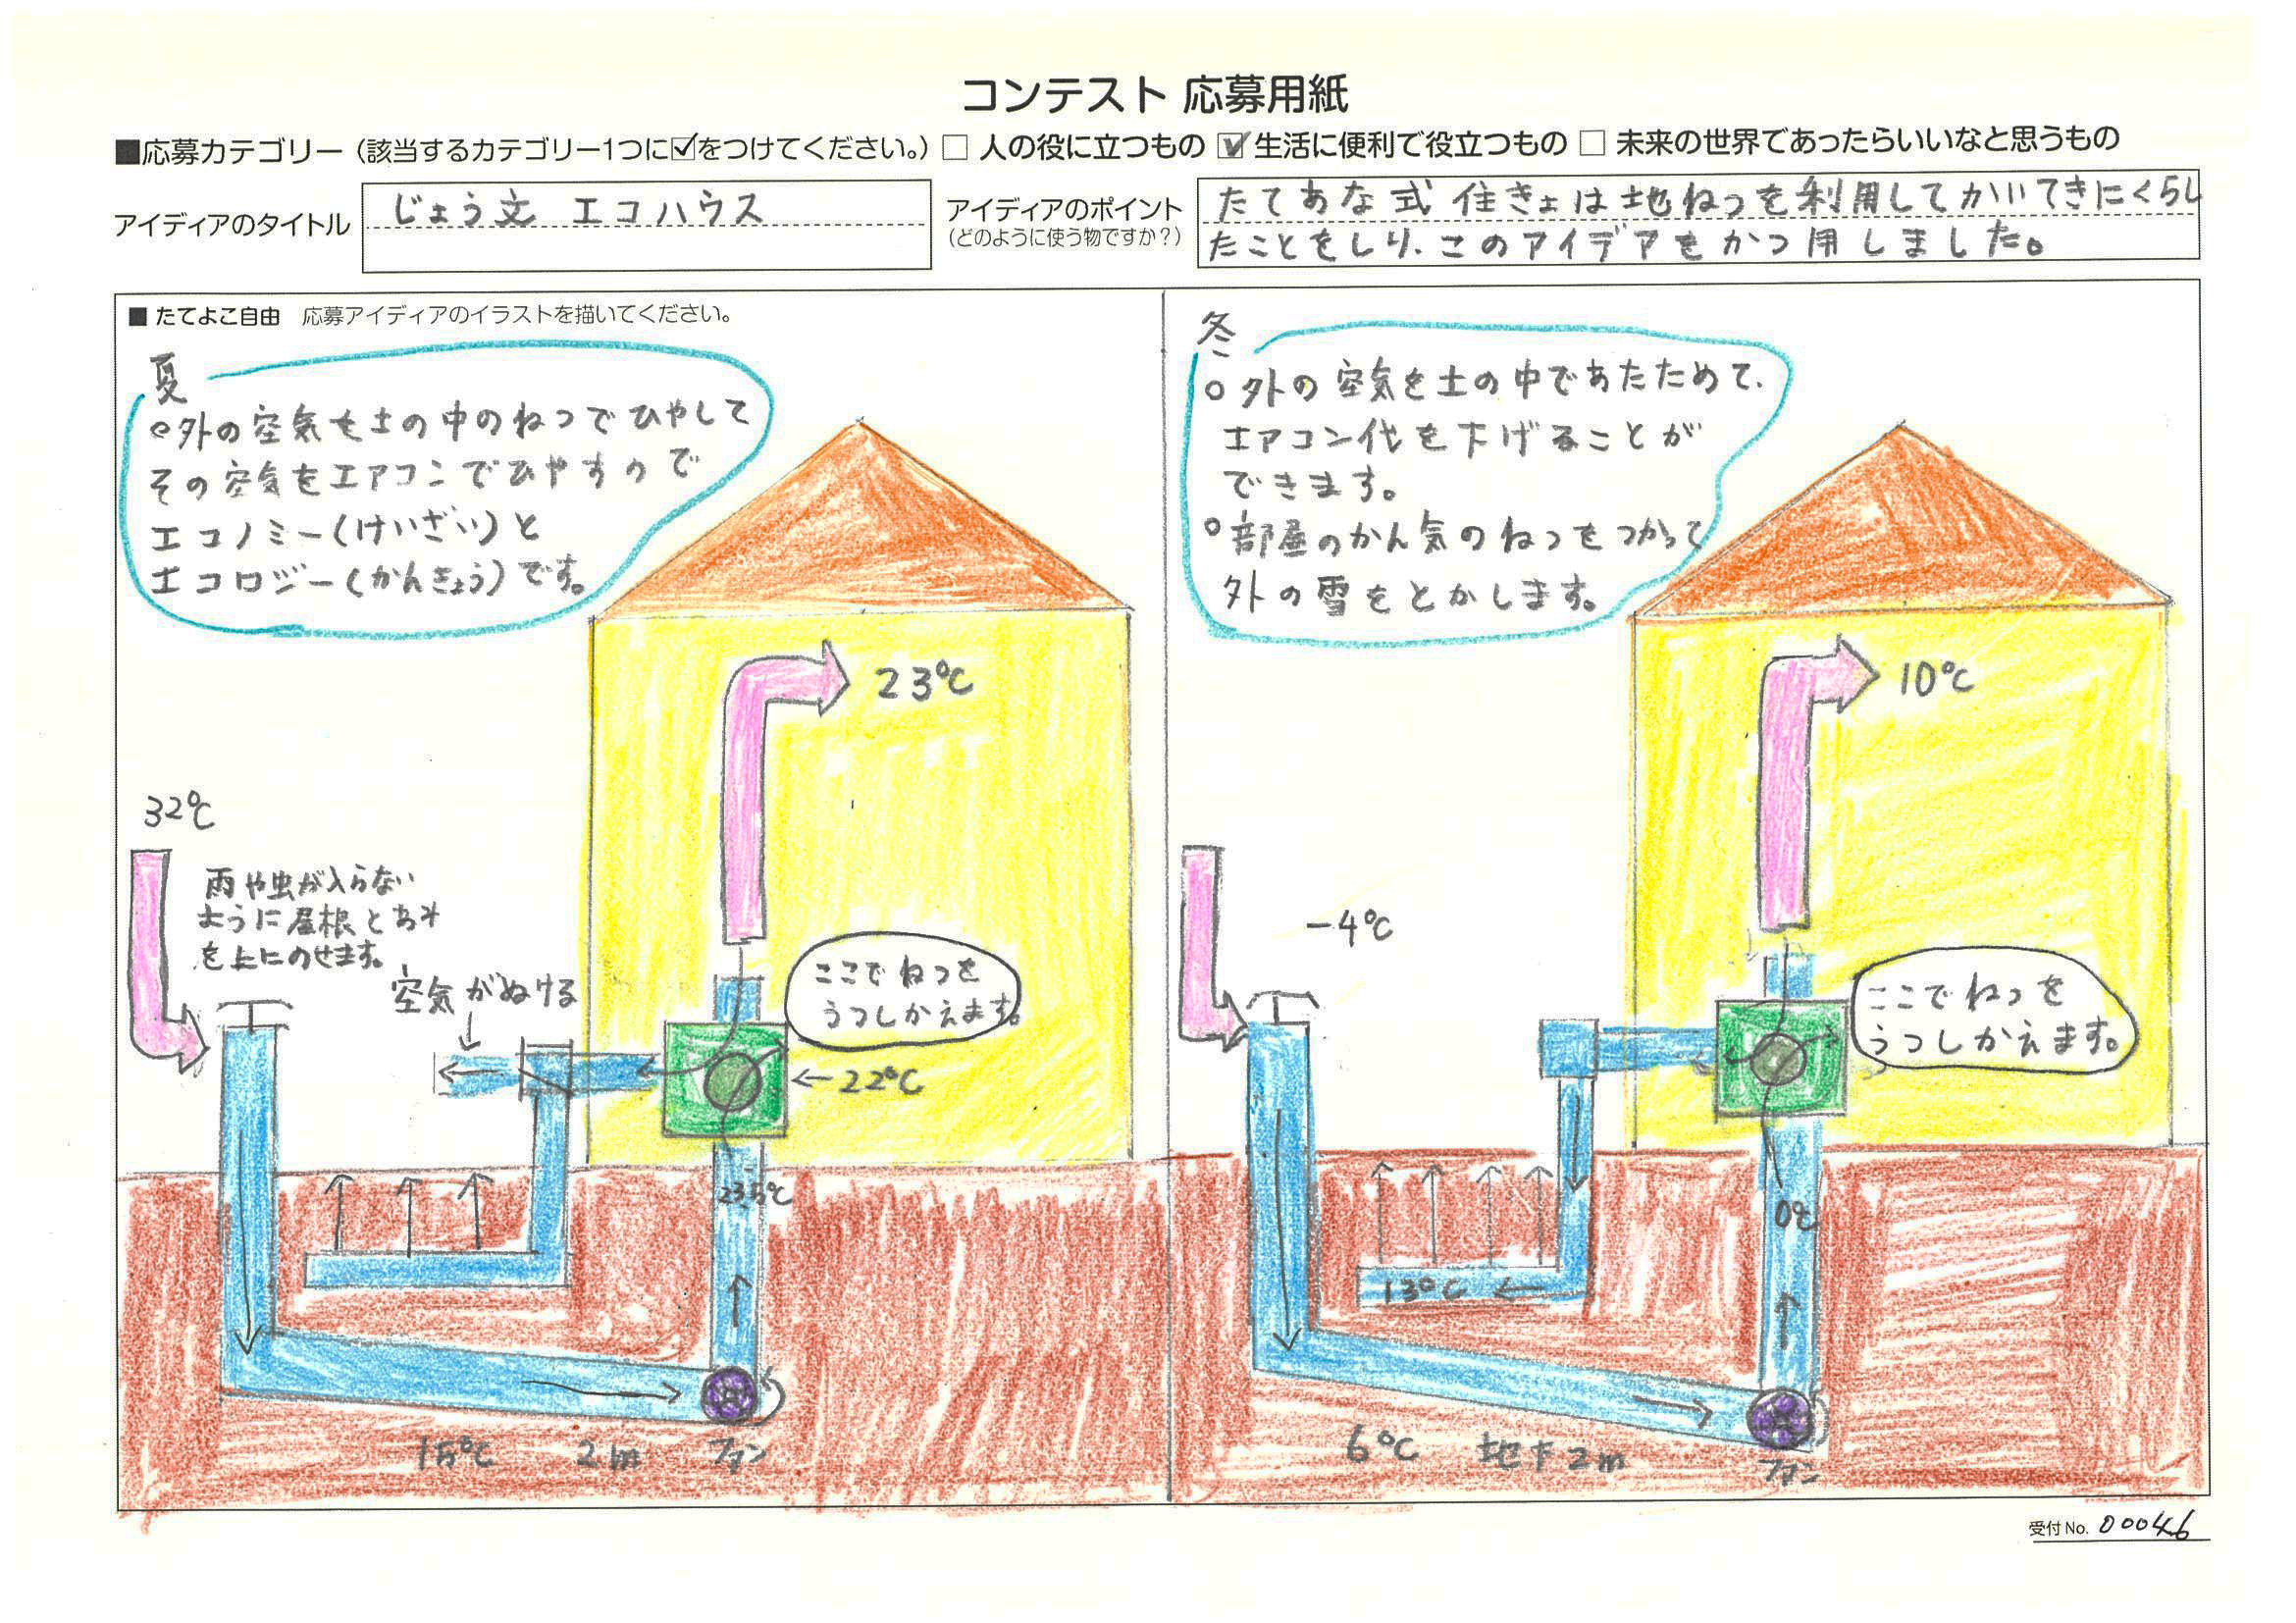 コンテスト 応募用紙
■応募カテゴリー（該当するカテゴリー1つに☑をつけてください。）□ 人の役に立つもの ☑ 生活に便利で役立つもの □ 未来の世界であったらいいなと思うもの
アイディアのタイトル
じょう文 エコハウス
アイディアのポイント
（どのように使う物ですか？）
たてあな式 住きょは地ねつを利用してかいてきにくらし
たことをしり、このアイデアをかつ用しました。
■ たてよこ自由 応募アイディアのイラストを描いてください。
夏
○外の空気を土の中のねつでひやして
その空気をエアコンでひやすので
エコノミー(けいざい)と
エコロジー(かんきょう)です。
23℃
32℃
雨や虫が入らない
ように屋根とあみ
を上にのせます。
空気がぬける
ここでねつを
うつしかえます。
←22℃
23.5℃
15℃ 2m ファン
冬
○外の空気を土の中であたためて、
エアコン代を下げることが
できます。
○部屋のかん気のねつをつかって
外の雪をとかします。
10℃
-4℃
ここでねつを
うつしかえます。
0℃
13℃
6℃ 地下2m ファン
受付No. 00046